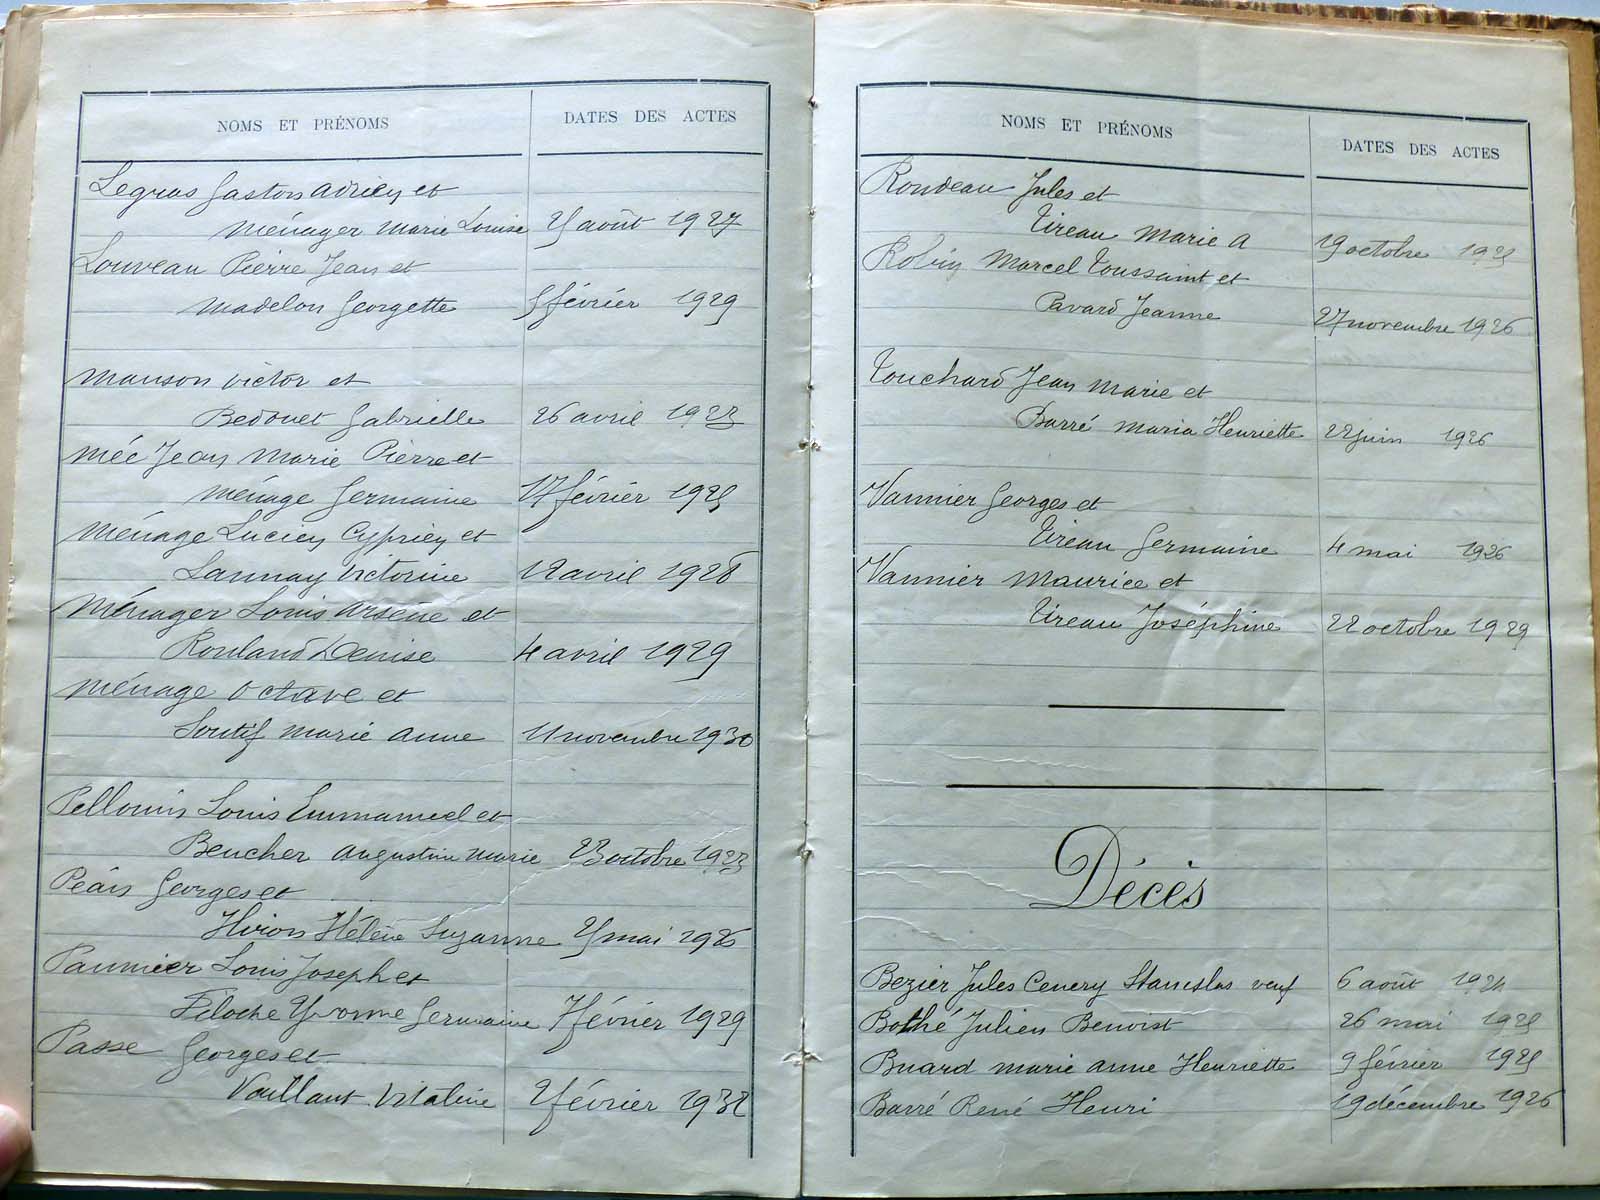 NOMS ET PRÉNOMS DATES DES ACTES
Legras Gaston Adrien et
Ménager Marie Louise 25 août 1927
Louveau Pierre Jean et
Madelon Georgette 5 février 1929
Manson Victor et
Bedouet Gabrielle 26 avril 1923
Mée Jean Marie Pierre et
Ménage Germaine 17 février 1925
Ménage Lucien Cyprien et
Launay Victorine 12 avril 1926
Ménager Louis Arsène et
Rouland Denise 4 avril 1929
Ménage Octave et
Soutif Marie Anne 11 novembre 1930
Louis Emmanuel et
Beucher Augustine Marie 23 octobre 1923
Péan Georges et
Hiron Hélène Suzanne 25 mai 1926
Paumier Louis Joseph et
Filoche Yvonne Germaine 7 février 1929
Passe Georges et
Vaillant Vitaline 2 février 1932
NOMS ET PRÉNOMS DATES DES ACTES
Rondeau Jules et
Tireau Marie A 19 octobre 1925
Robin Marcel Toussaint et
Pavard Jeanne 27 novembre 1926
Touchard Jean Marie et
Barré Maria Henriette 22 juin 1926
Vannier Georges et
Tireau Germaine 4 mai 1926
Vannier Maurice et
Tireau Joséphine 22 octobre 1929
Décès
Bezier Jules Cenery Stanislas veuf 6 août 1924
Bothé Julien Benoist 26 mai 1925
Buard Marie Anne Henriette 9 février 1925
Barré René Henri 19 décembre 1926